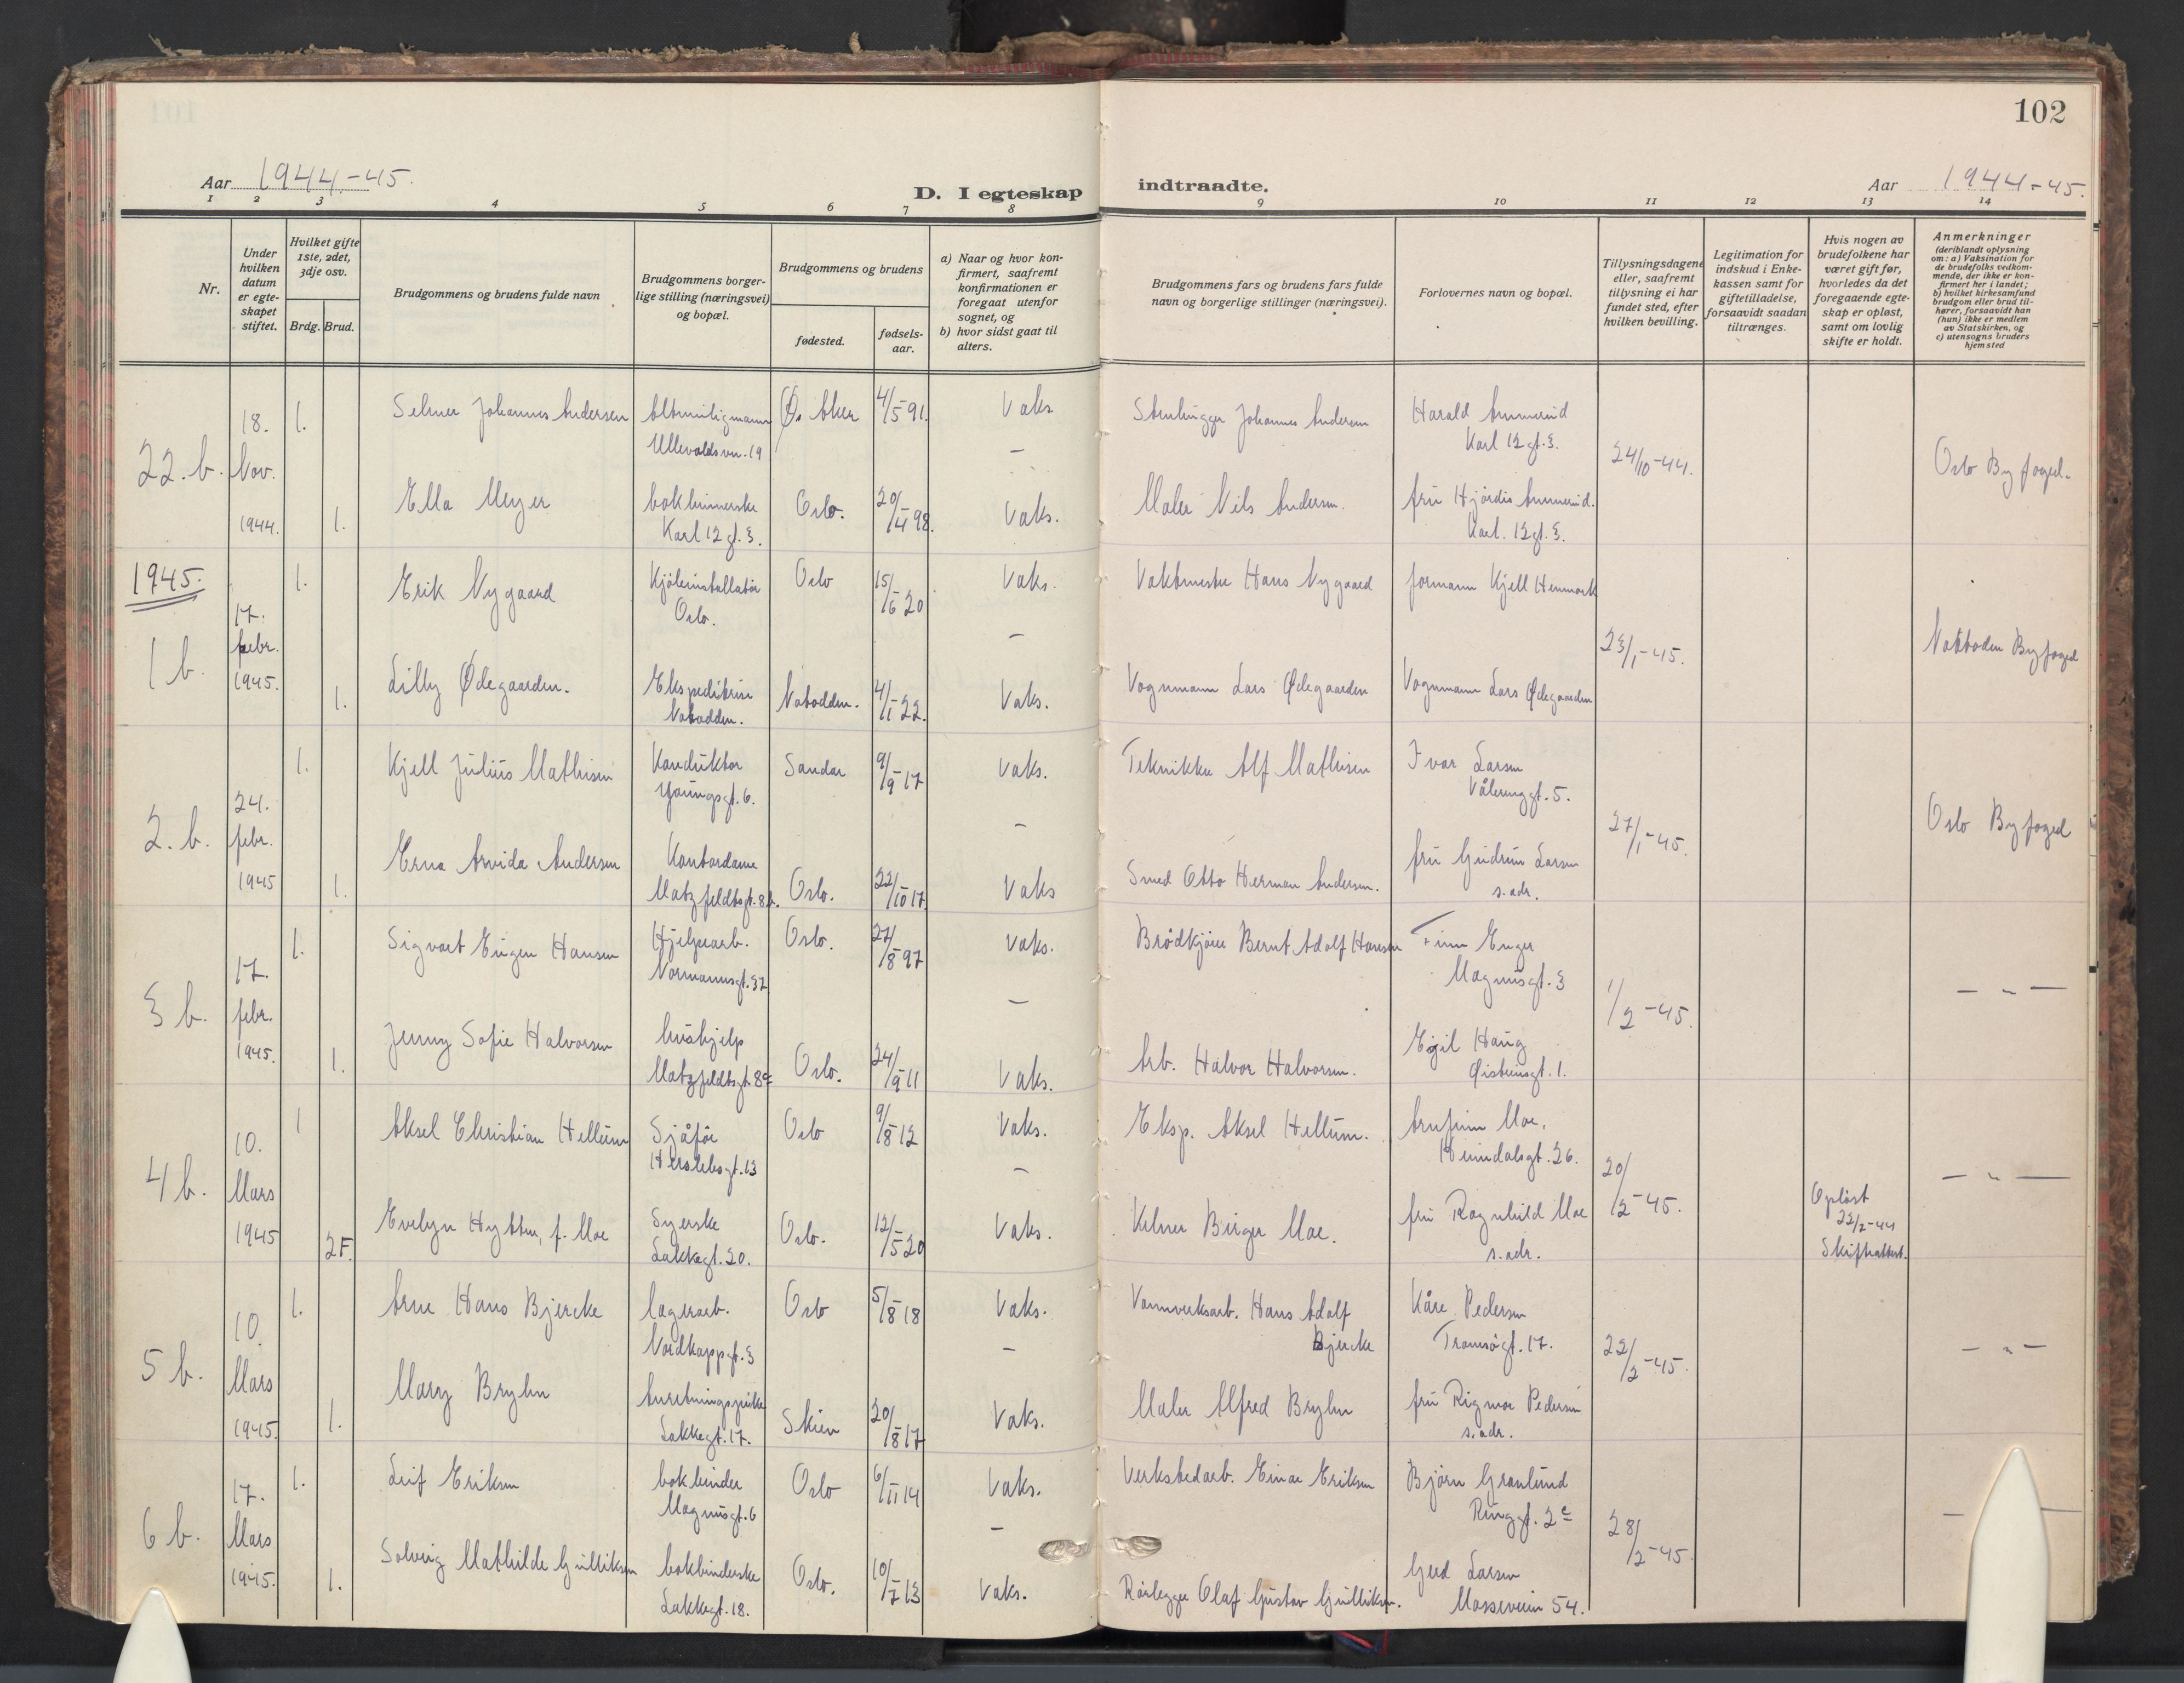 102
Aar 1944-45.
D. I egteskap indtraadte.
Aar 1944-45.
1 2 3 4 5 6 7 8 9 10 11 12 13 14
Nr.
Under hvilken datum er egteskapet stiftet.
Hvilket gifte 1ste, 2det, 3dje osv.
Brdg. Brud.
Brudgommens og brudens fulde navn
Brudgommens borgerlige stilling (næringsvei) og bopæl.
Brudgommens og brudens
fødested.
fødselsaar.
a) Naar og hvor konfirmert, saafremt konfirmationen er foregaat utenfor sognet, og
b) hvor sidst gaat til alters.
Brudgommens fars og brudens fars fulde navn og borgerlige stillinger (næringsvei).
Forlovernes navn og bopæl.
Tillysningsdagene eller, saafremt tillysning ei har fundet sted, efter hvilken bevilling.
Legitimation for indskud i Enkekassen samt for giftetilladelse, forsaavidt saadan tiltrænges.
Hvis nogen av brudefolkene har været gift før, hvorledes da det foregaaende egteskap er opløst, samt om lovlig skifte er holdt.
Anmerkninger (deriblandt oplysning om: a) Vaksination for de brudefolks vedkommende, der ikke er konfirmert her i landet; b) hvilket kirkesamfund brudgom eller brud tilhører, forsaavidt han (hun) ikke er medlem av Statskirken, og c) utensogns bruders hjemsted
22.b. 18. Nov. 1944.
1. Selmer Johannes Andersen Altmuligmann Ullevoldsvn. 19 Ø. Aker 4/5-91. Vaks. Johannes Andersen Harald Ammerud Karl 12 gt. 3.
24/10-44. Oslo Byfoged.
1. Ella Meyer bokbinnerske Karl 12 gt. 3. Oslo. 20/4-98. Vaks. Maler Nils Andersen. fru Hjørdis Ammerud. Karl. 12 gt. 3.
1945.
1 b. 17. febr. 1945.
1. Erik Nygaard Kjøleinstallatør Oslo. Oslo 15/6-20 Vaks. Vaktmester Hans Nygaard formann Kjell Henmark
23/1-45. Notodden Byfoged
1. Lilly Ødegaarden. Ekspeditrise Notodden. Notodden. 4/1-22. Vaks. Vognmann Lars Ødegaarden Vognmann Lars Ødegaarden
2. b. 24. febr. 1945
1. Kjell Julius Mathisen Konduktør Youngsgt. 6. Sandar 9/9-17 Vaks. Tekniker Alf Mathisen Ivar Larsen Vålerenggt. 5.
27/1-45. Oslo Byfoged
1. Erna Arvida Andersen Kontordame Motzfeldtsgt. 8 b. Oslo. 22/10-17. Vaks Smed Otto Herman Andersen. fru Gudrun Larsen s. adr.
3 b. 17. febr. 1945.
1. Sigvart Eugen Hansen Hjelpearb. Normannsgt. 37 Oslo. 27/8-97 Vaks. Brødkjører Bernt Adolf Hansen Finn Enger Magnusgt. 3
1/2-45. — " —
1. Jenny Sofie Halvorsen hushjelp Motzfeldtsgt. 8c Oslo. 24/9-11 Vaks. Arb. Halvor Halvorsen. Egil Haug Øisteinsgt. 1.
4 b. 10. Mars 1945
1 Aksel Christian Hellum Sjåfør Herslebsgt. 13 Oslo 9/8-12 Vaks. Eksp. Aksel Hellum. Arnfinn Moe. Heimdalsgt. 26.
20/2-45. — " —
2F. Evelyn Hytten, f. Moe Syerske Lakkegt. 20. Oslo. 12/5-20 Vaks. Kelner Birger Moe. fru Ragnhild Moe s. adr. Opløst 22/2-44 Skifteattest.
5 b. 10. Mars 1945.
1. Arne Hans Bjercke lagerarb. Nordkappgt. 3 Oslo 5/8-18 Vaks. Vannverksarb. Hans Adolf Bjercke Kåre Pedersen Tromsøgt. 17.
22/2-45. — " —
1. Mary Brylin Anretningspike Lakkegt. 17. Skien 20/8-17 Vaks. Maler Alfred Brylin fru Rigmor Pedersen s. adr.
6 b. 17. Mars 1945.
1. Leif Eriksen bokbinder Magnusgt. 6 Oslo 6/11-14 Vaks. Verkstedarb. Einar Eriksen Bjørn Granlund Ringgt. 2c
28/2-45. —
1. Solveig Mathilde Gulliksen bokbinderske Lakkegt. 18. Oslo. 10/7-13 Vaks. Rørlegger Olaf Gustav Gulliksen. Gerd Larsen Mosseveien 54.